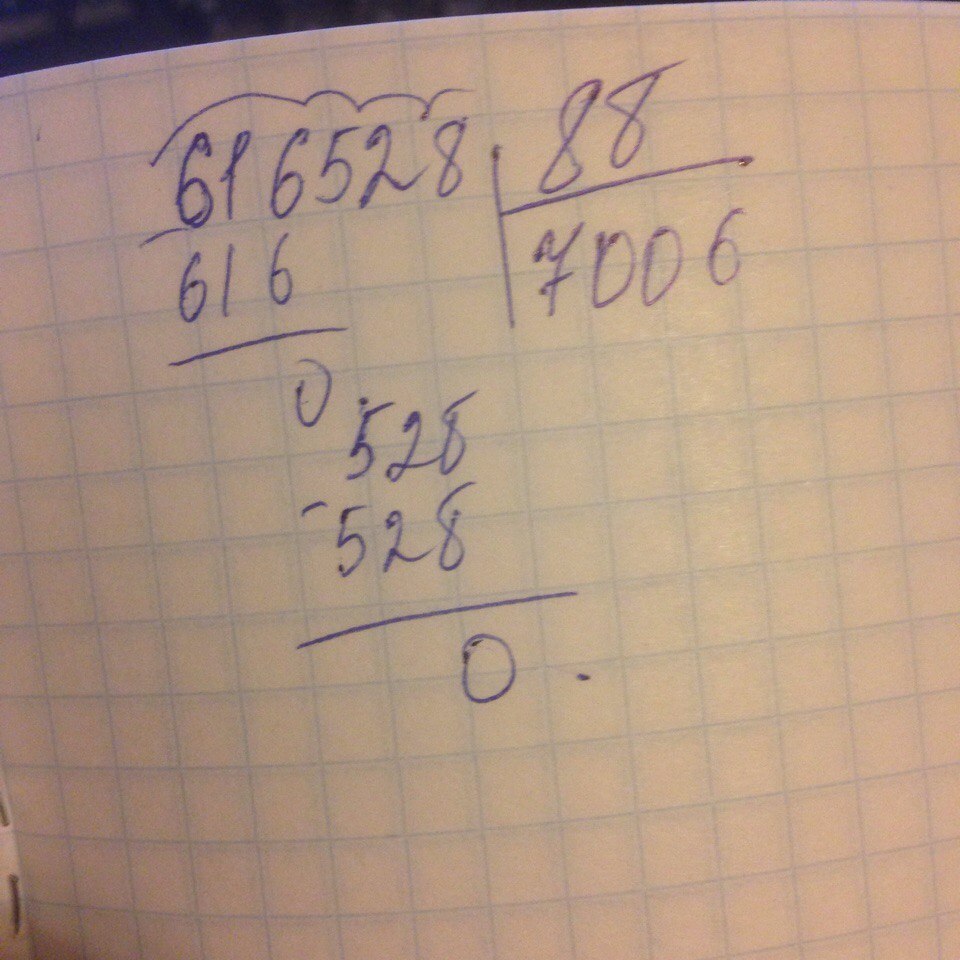 616528 88
616 7006
0
528
-528
0.